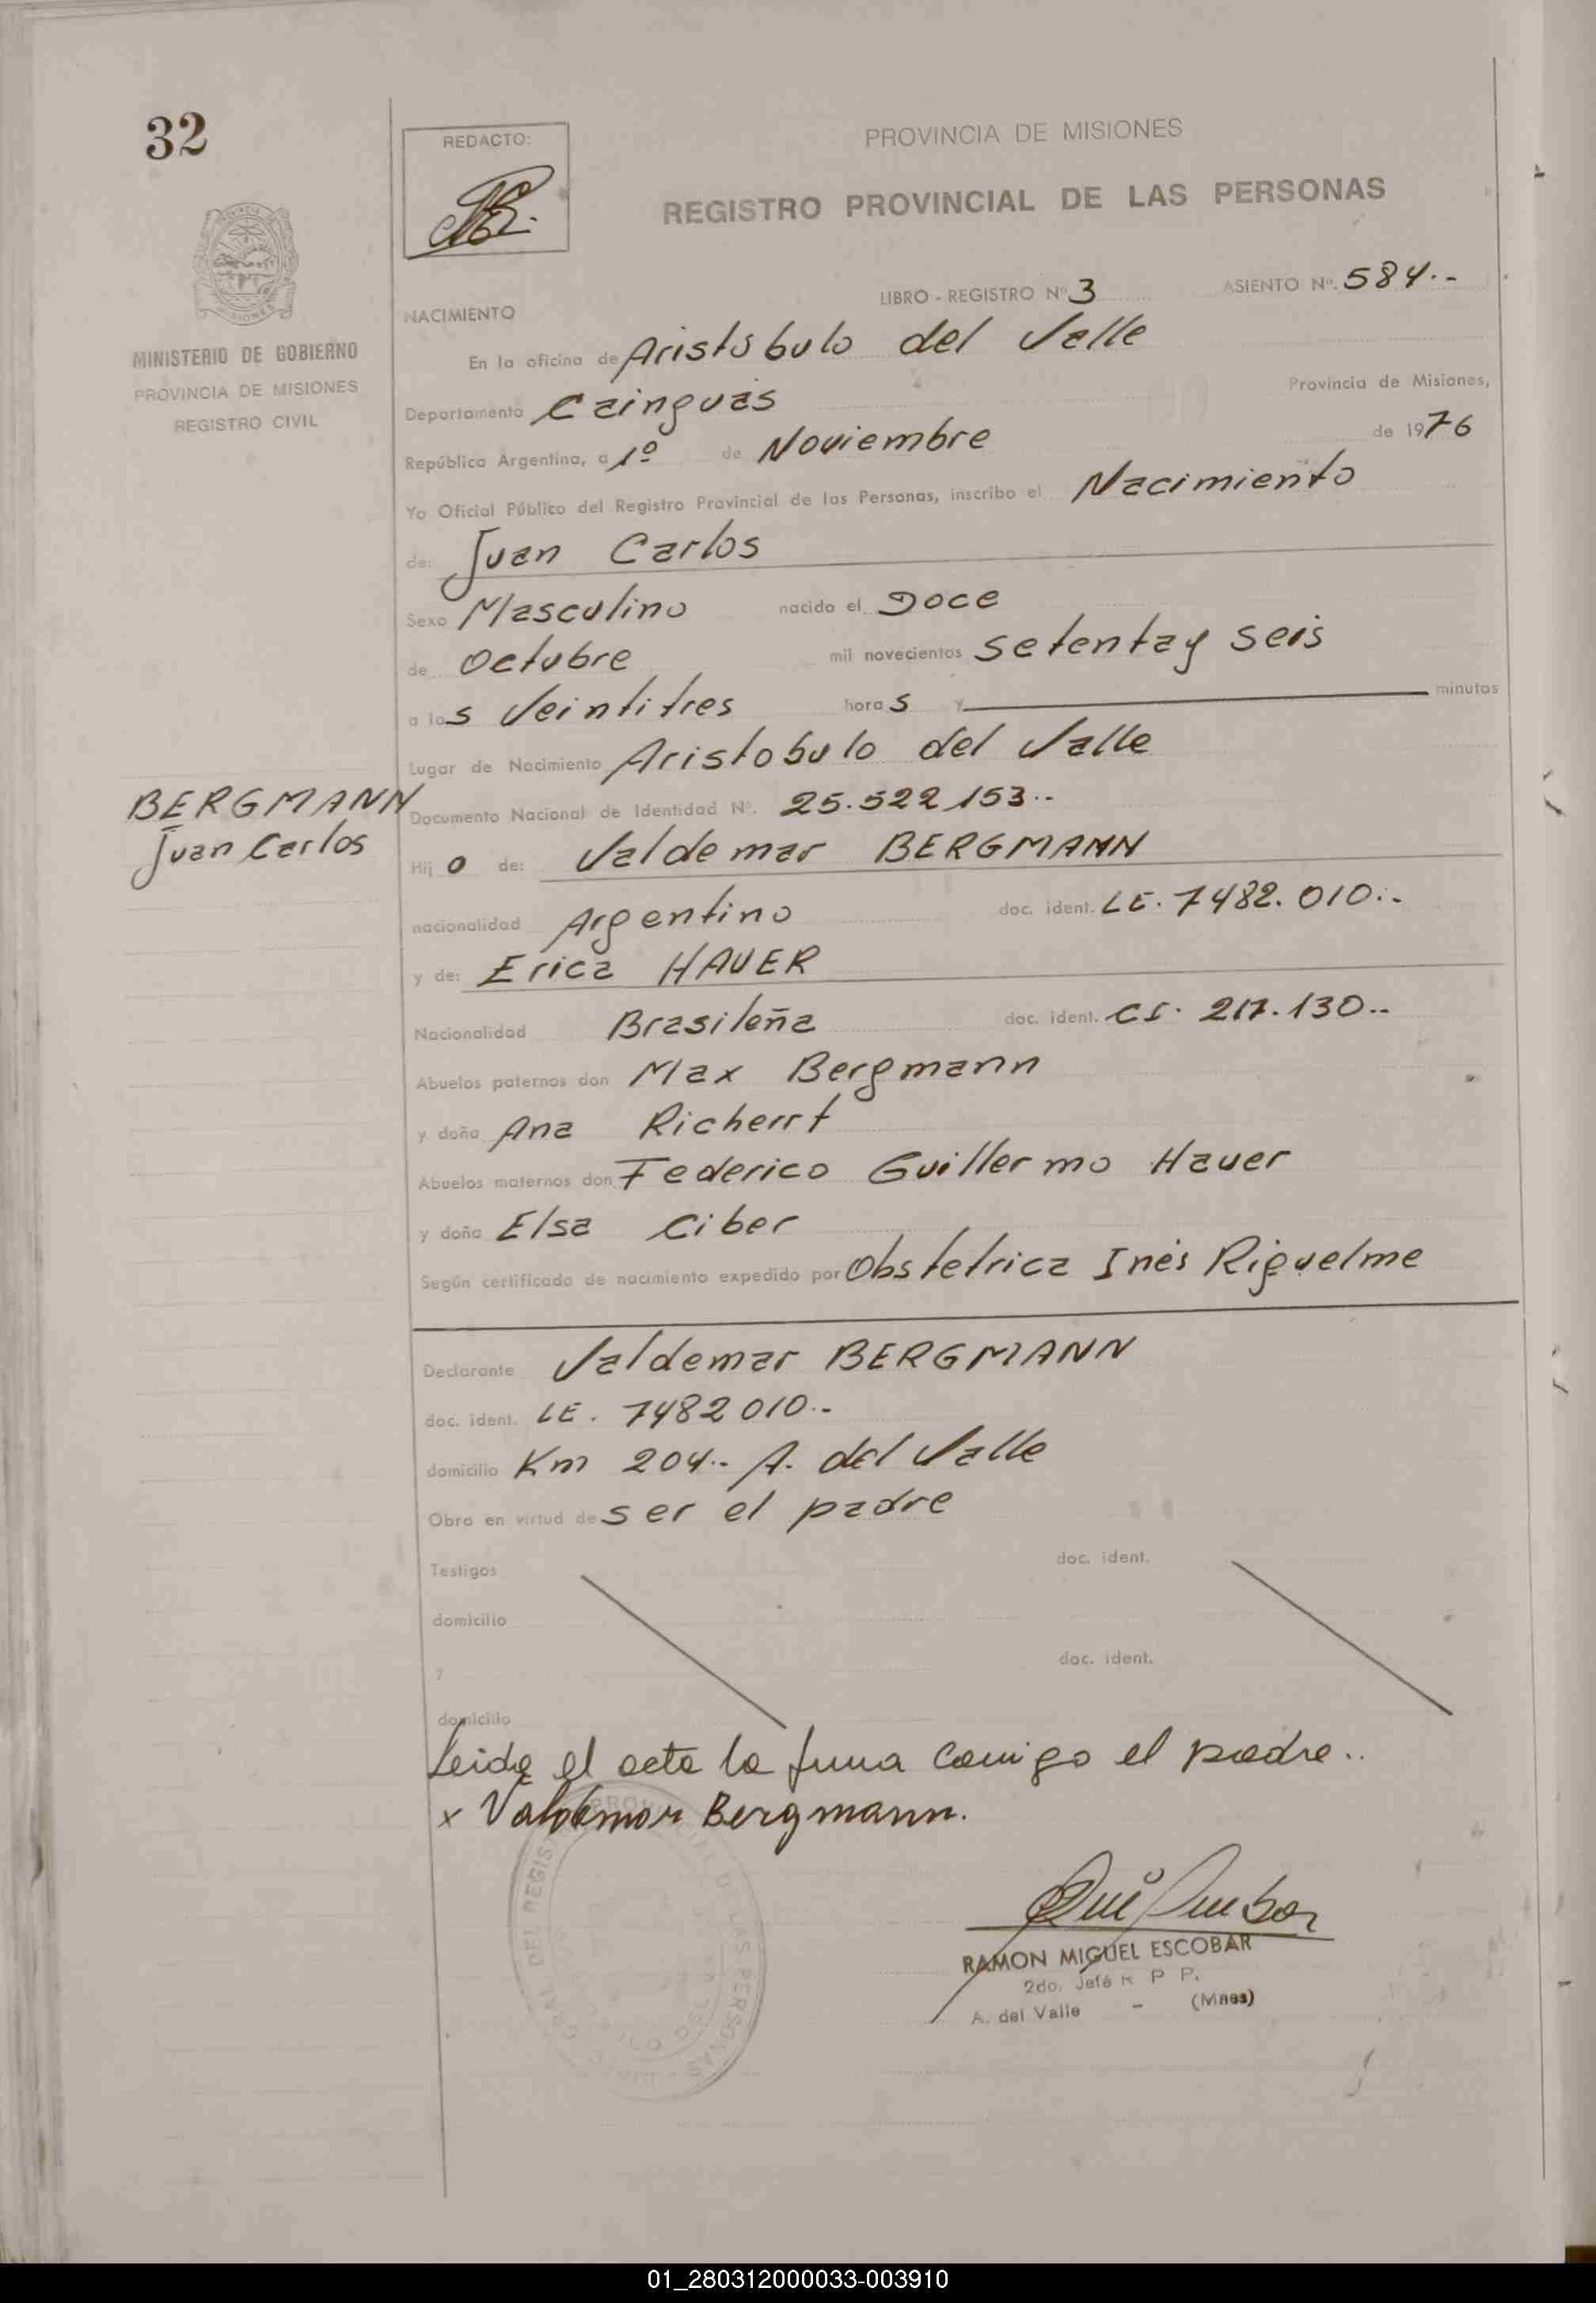 32
REDACTO:
PROVINCIA DE MISIONES
REGISTRO PROVINCIAL DE LAS PERSONAS
LIBRO - REGISTRO Nº 3 ASIENTO Nº. 584.-
NACIMIENTO
MINISTERIO DE GOBIERNO
PROVINCIA DE MISIONES
REGISTRO CIVIL
En la oficina de Aristóbulo del Valle
Departamento Cainguás Provincia de Misiones,
República Argentina, a 1º de Noviembre de 1976
Yo Oficial Público del Registro Provincial de las Personas, inscribo el Nacimiento
de: Juan Carlos
Sexo Masculino nacido el Doce
de Octubre mil novecientos setenta y seis
a las Veintitres horas y minutos
Lugar de Nacimiento Aristobulo del Valle
BERGMANN
Juan Carlos
Documento Nacional de Identidad Nº. 25.522.153.-
Hijo de: Valdemar BERGMANN
nacionalidad Argentino doc. ident. LE. 7482.010.-
y de: Erica HAUER
Nacionalidad Brasileña doc. ident. CI. 217.130.-
Abuelos paternos don Max Bergmann
y doña Ana Richerrt
Abuelos maternos don Federico Guillermo Hauer
y doña Elsa Ciber
Según certificado de nacimiento expedido por Obstetrica Inés Riquelme
Declarante Valdemar BERGMANN
doc. ident. LE. 7482010.-
domicilio Km 204.- A. del Valle
Obra en virtud de ser el padre
Testigos doc. ident.
domicilio
y doc. ident.
domicilio
Leida el acta la firma conmigo el padre..
x Valdemar Bergmann.
RAMON MIGUEL ESCOBAR
2do. Jefe R P P.
A. del Valle - (Mnes)
01_280312000033-003910